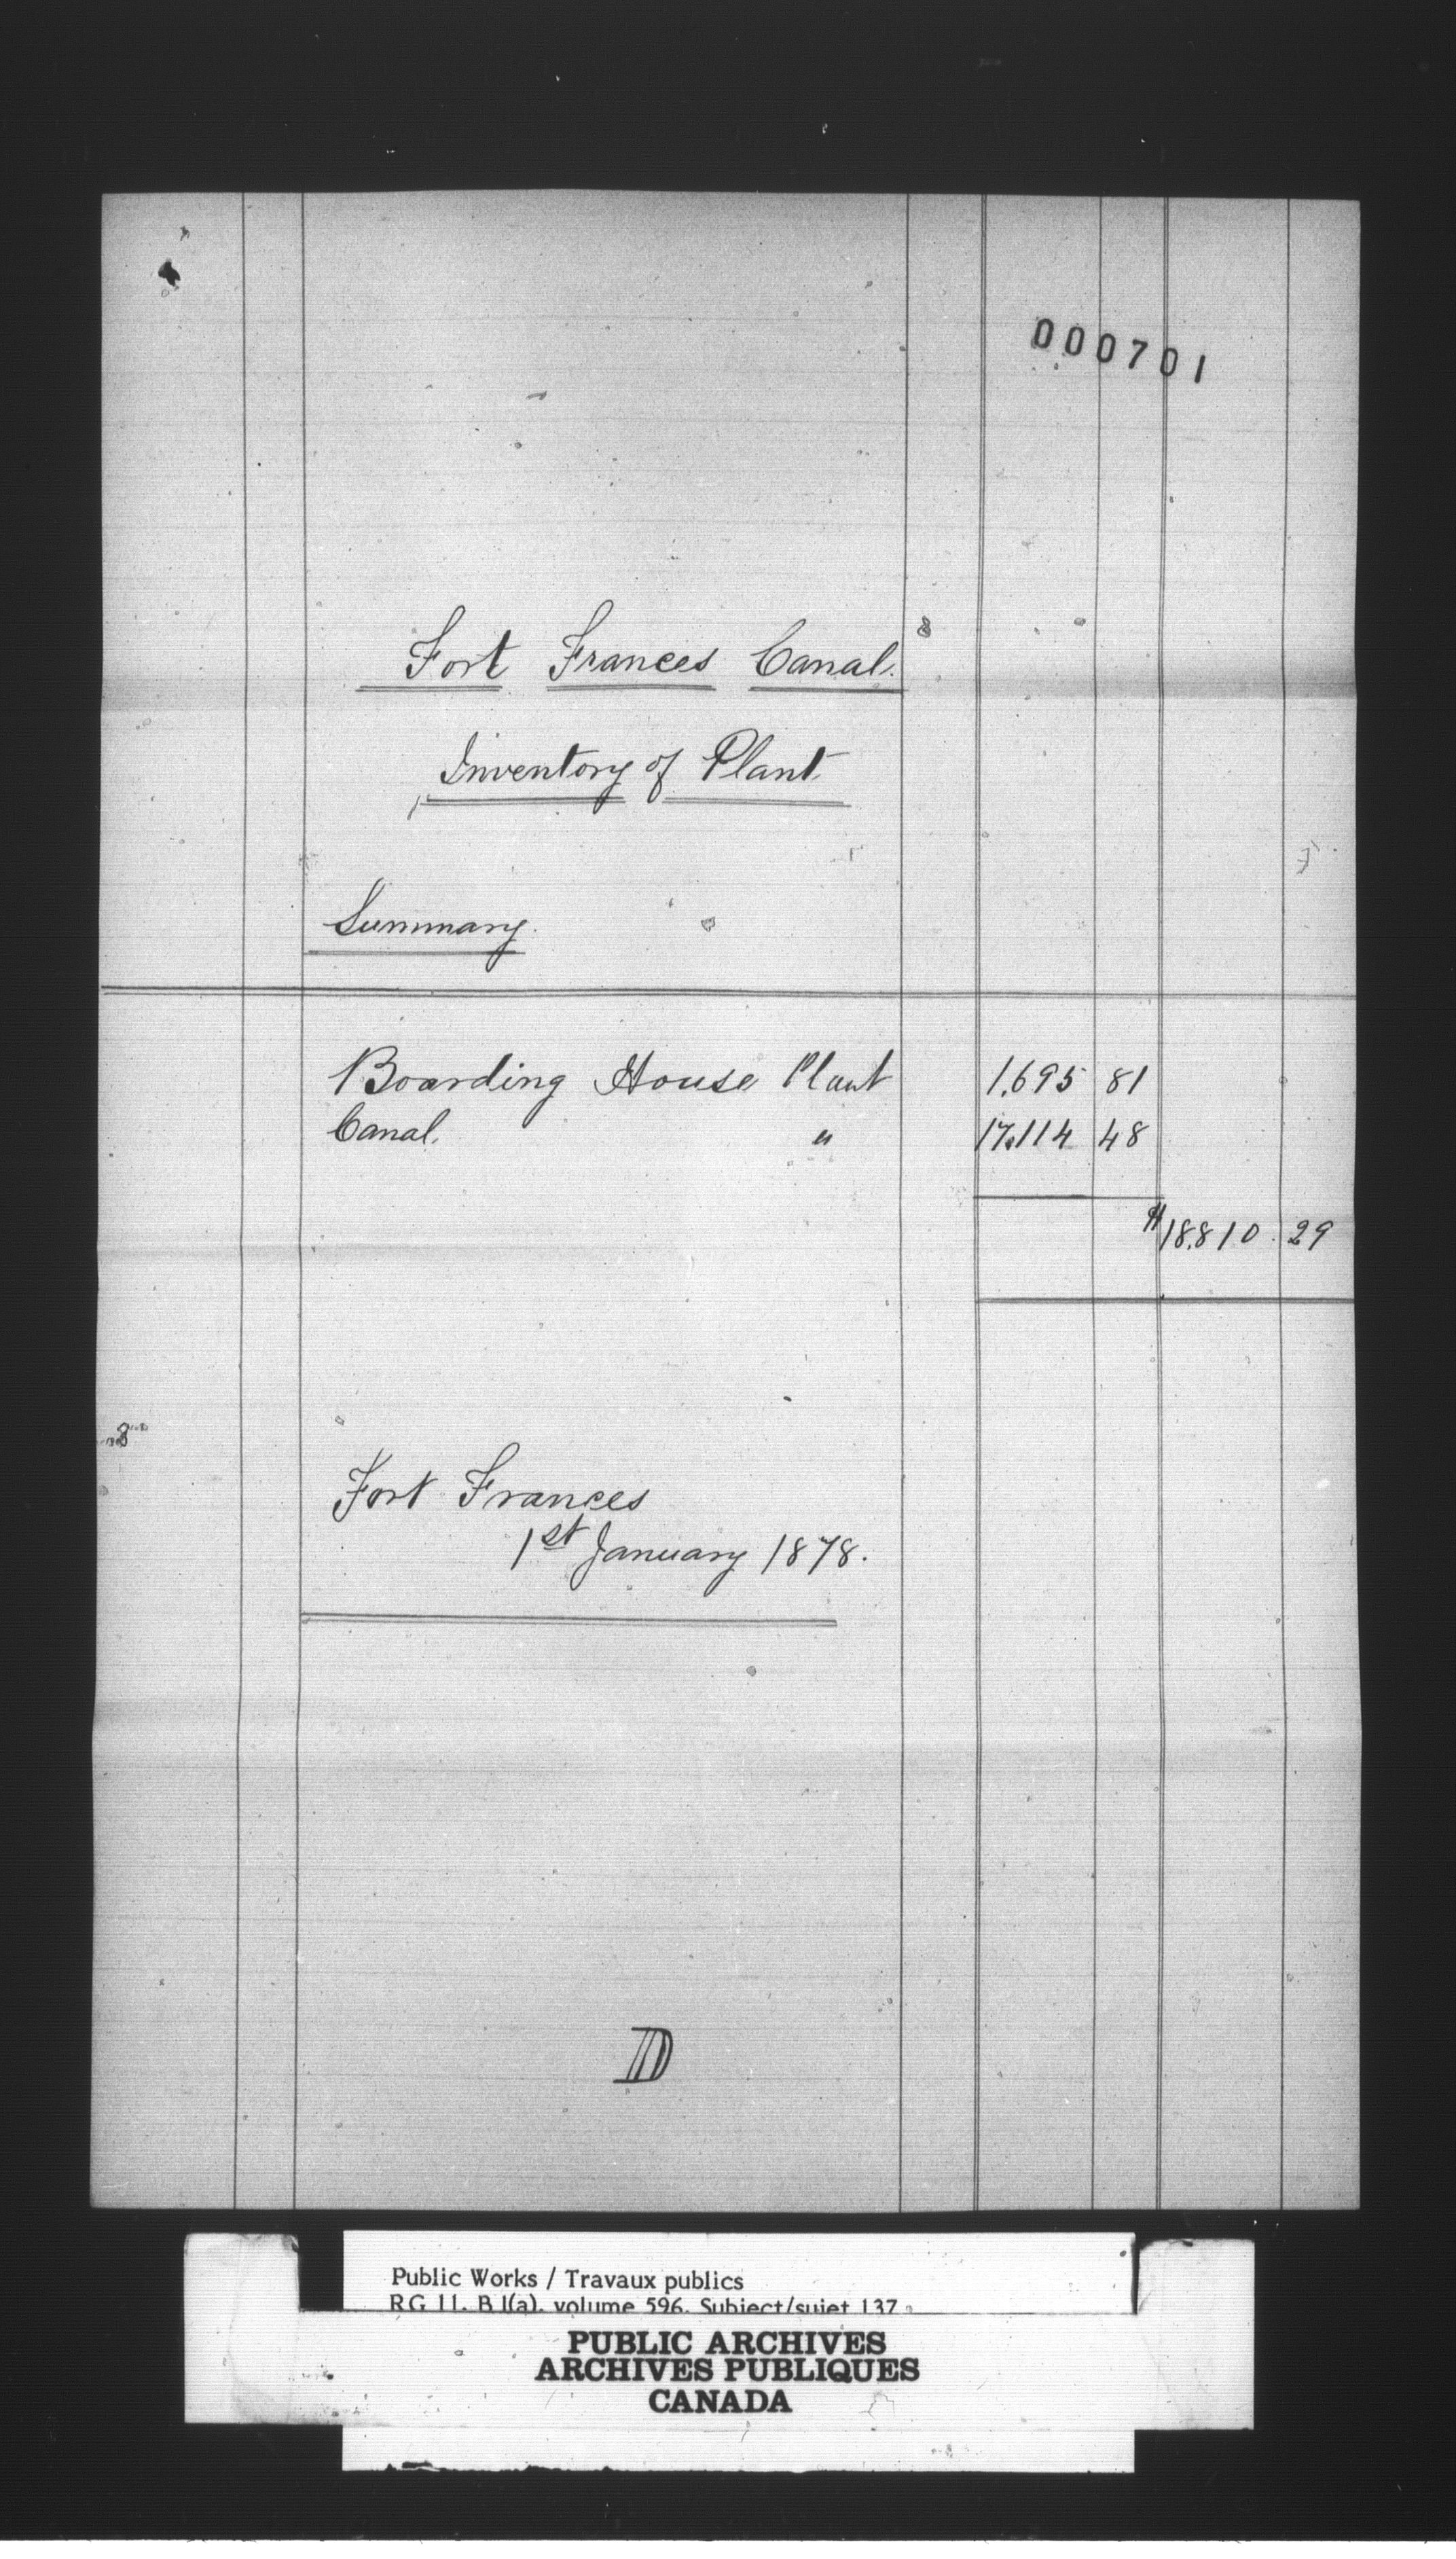 000701
Fort Frances Canal.
Inventory of Plant.
Summary.
Boarding House Plant 1,695 81
Canal. " 17,114 48
$18,810.29
Fort Frances
1st January 1878.
D
Public Works / Travaux publics
RG 11, B1(a), volume 596, Subject/sujet 137
PUBLIC ARCHIVES
ARCHIVES PUBLIQUES
CANADA